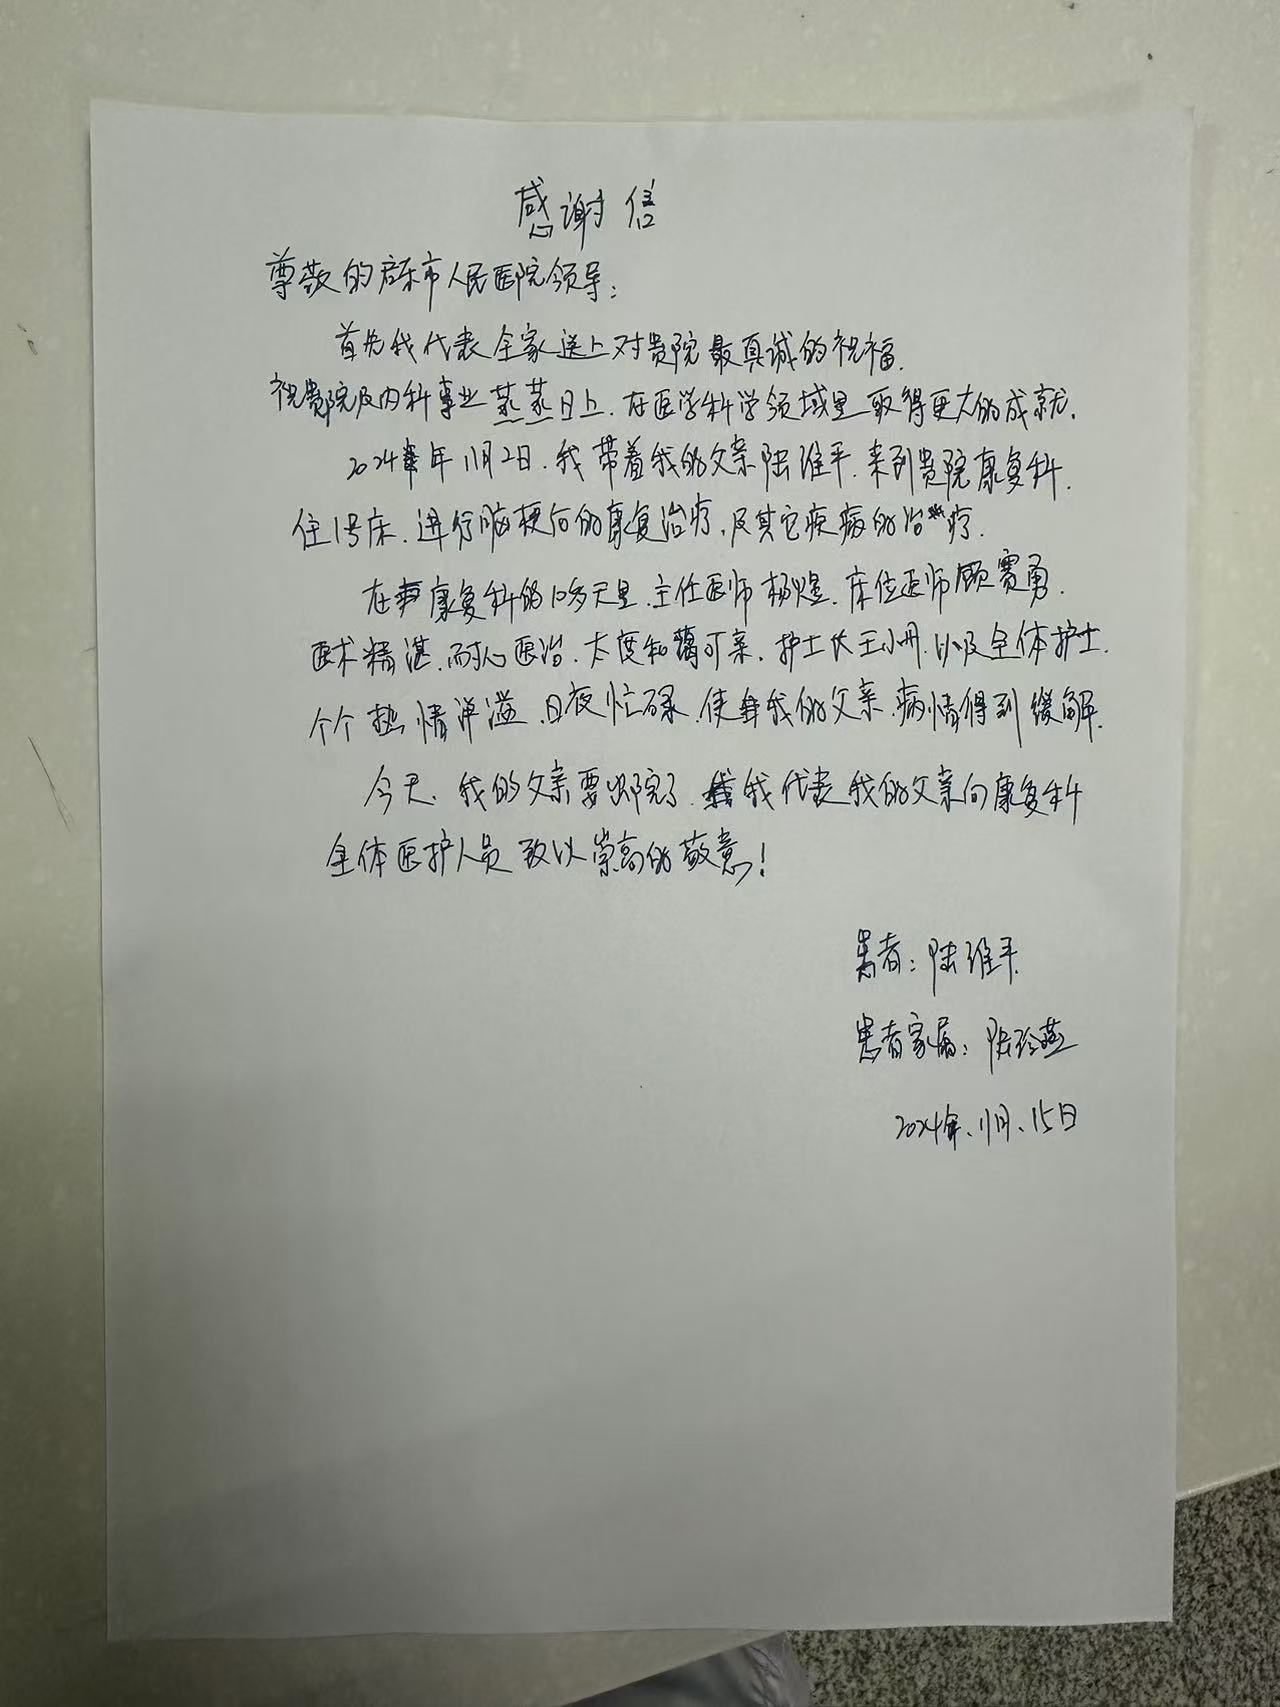 感谢信
尊敬的启东市人民医院领导：
首先我代表全家送上对贵院最真诚的祝福.
祝贵院及内科事业蒸蒸日上.在医学科学领域里取得更大的成就.
2024年11月2日.我带着我的父亲陆维平.来到贵院康复科.
住1号床.进行脑梗后的康复治疗,及其它疾病的治疗.
在康复科的10多天里.主任医师杨煜.床位医师顾赛勇.
医术精湛.耐心医治.太度和蔼可亲.护士长王小丹.以及全体护士.
个个热情洋溢.日夜忙碌.使我的父亲.病情得到缓解.
今天.我的父亲要出院了.我代表我的父亲向康复科
全体医护人员致以崇高的敬意!
患者：陆维平.
患者家属：陆玲燕
2024年、11月、15日